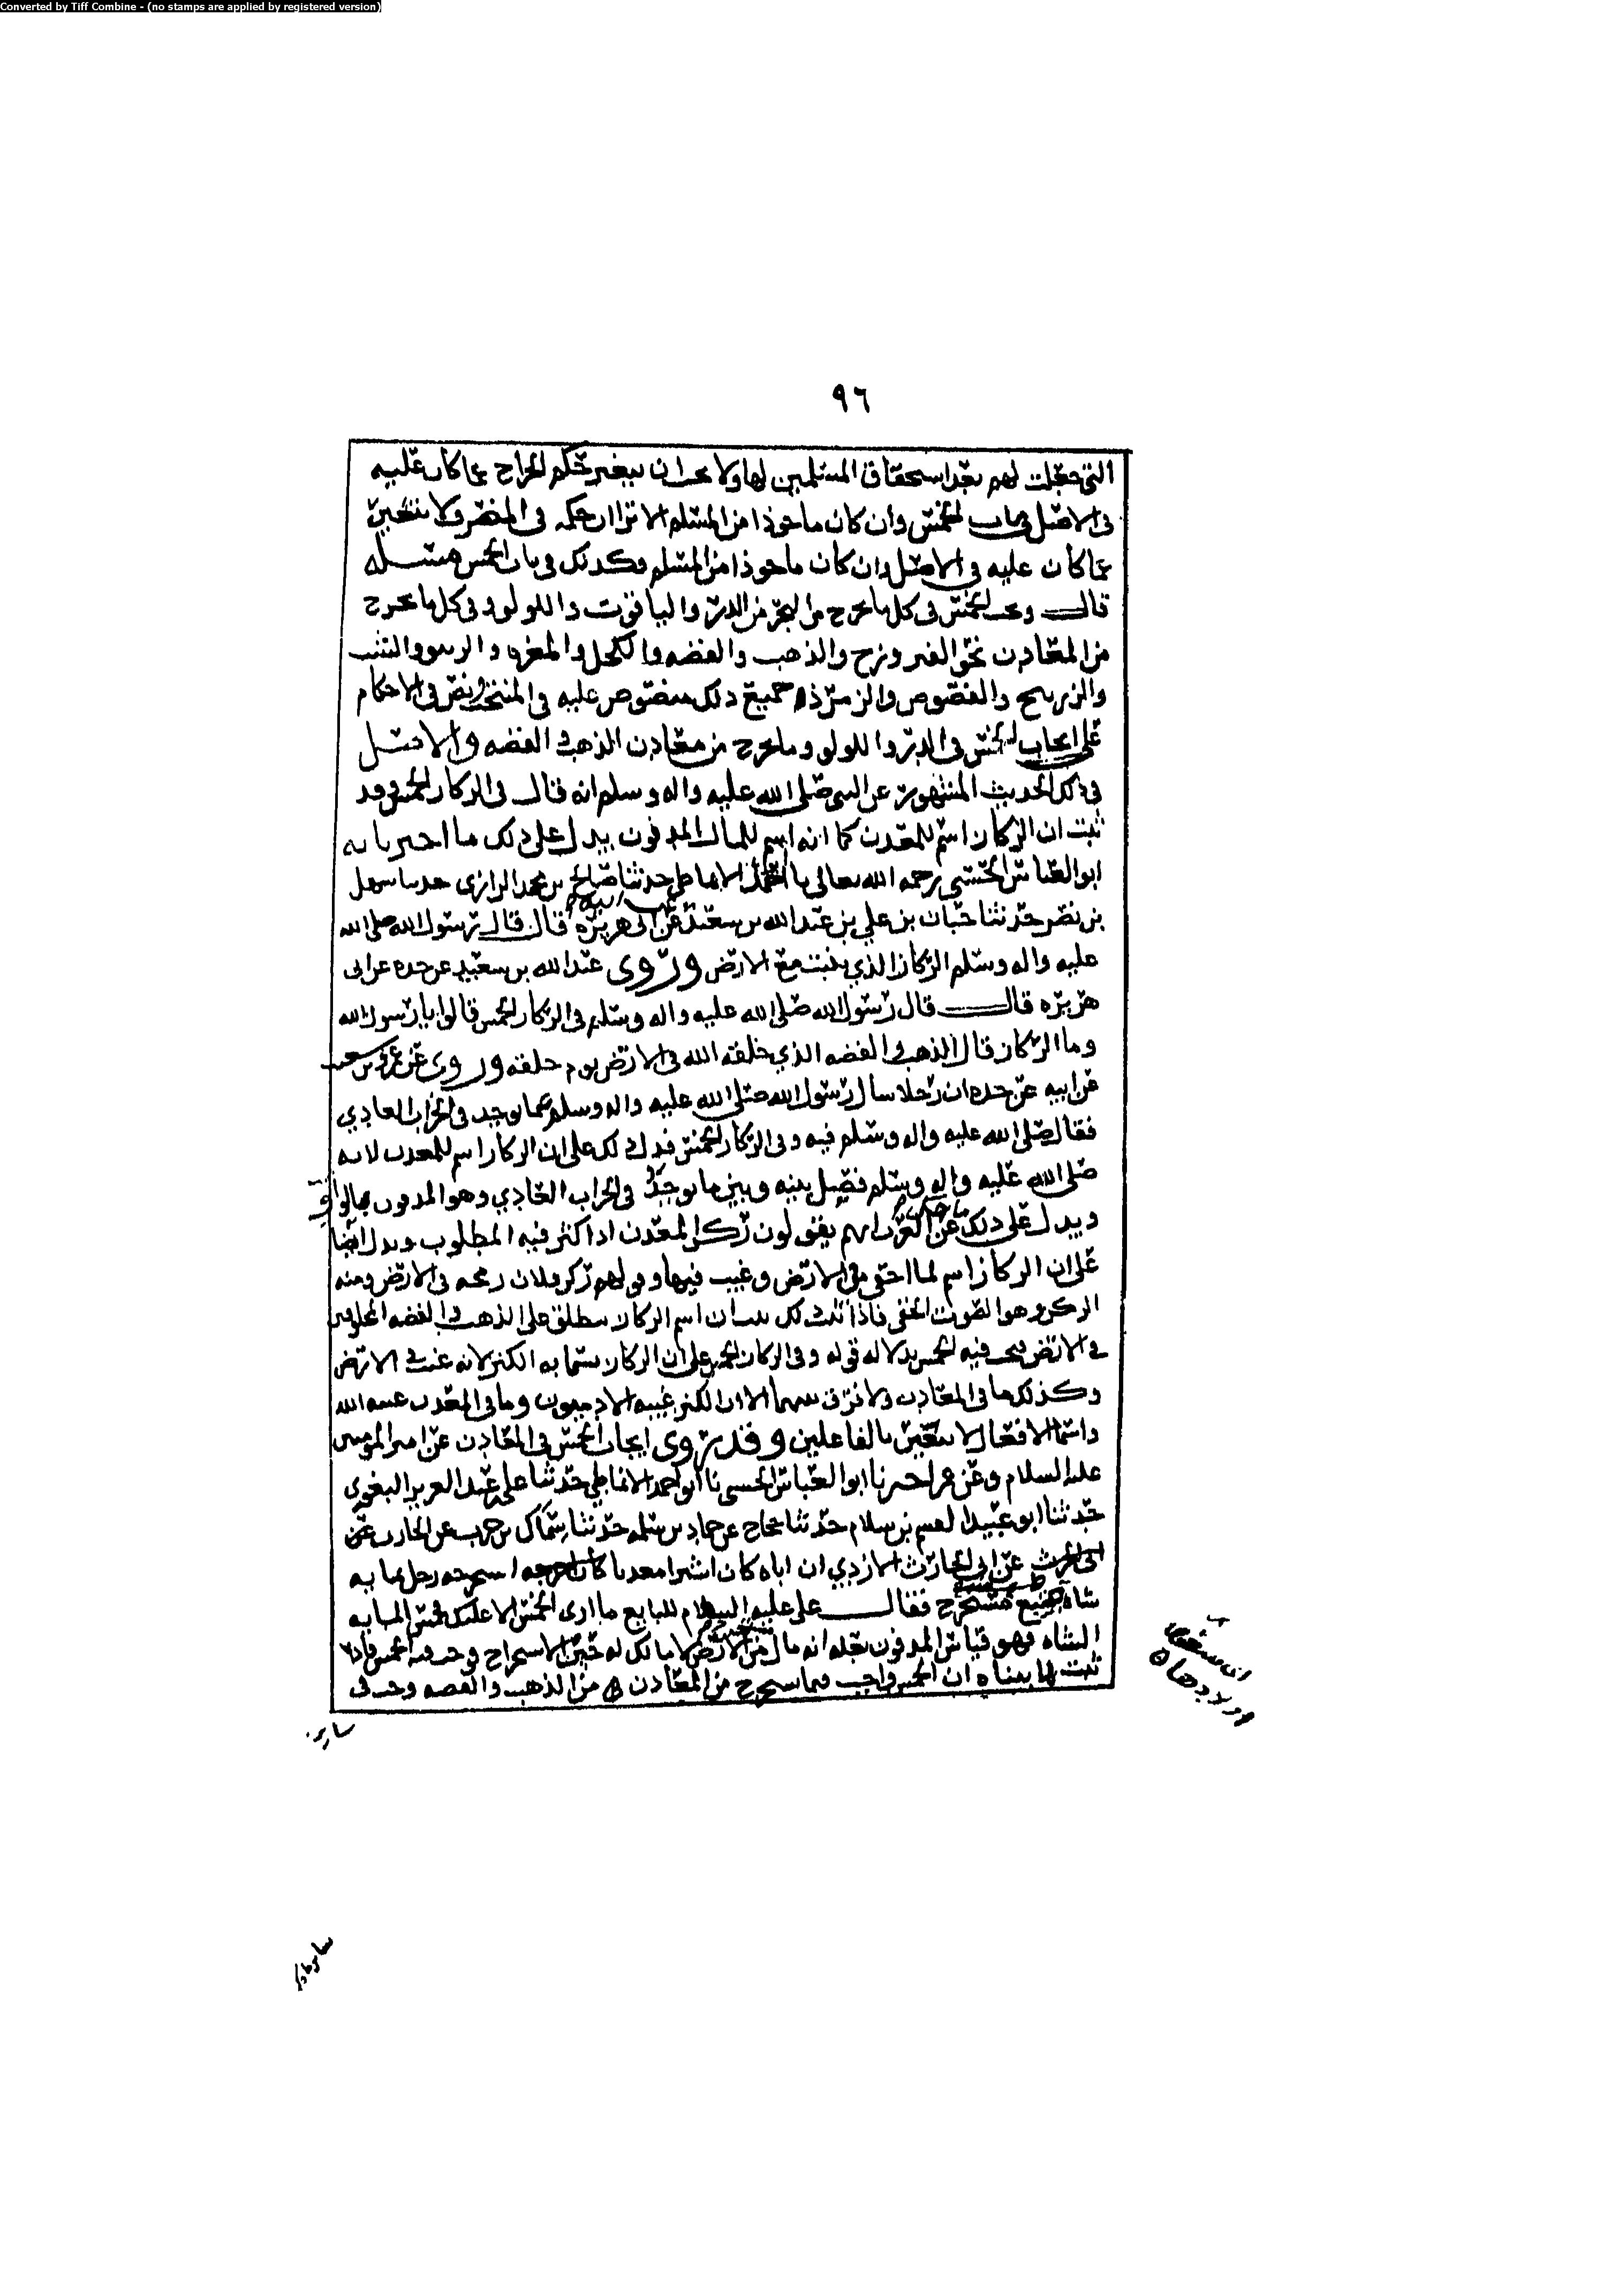 Converted by Tiff Combine - (no stamps are applied by registered version)
٩٦
التي جعلت لهم بعد استحقاق المسلمين لها ولا يجب ان يتغير حكم الخراج عما كان عليه
في الاصل في باب الخمس وان كان ماخوذا من المسلم الا ترا ان حكمه في المصرف لا يتغير
عما كان عليه في الاصل وان كان ماخوذا من المسلم وكذلك في باب الخمس مسئله
قال ويجب الخمس في كل ما يخرج من البحر من الدر والياقوت واللولو وفي كل ما يخرج
من المعادن نحو الفيروزج والذهب والفضه والكحل والمغره والشب
والزرنيخ والفصوص والزمرذ جميع ذلك منصوص عليه في المنتخب ونص في الاحكام
على ايجاب الخمس في الدر واللولو وما يخرج من معادن الذهب والفضه والاصل
في ذلك الحديث المشهور عن النبي صلى الله عليه واله وسلم انه قال في الركاز الخمس وقد
ثبت ان الركاز اسم للمعدن كما انه اسم للمال المدفون يدل على ذلك ما اخبرنا به
ابو العباس الحسني رحمه الله تعالى الانماطي حدثنا صالح بن محمد الرازي حدثنا سهل
بن نصر حدثنا حبان بن علي بن عبدالله بن سعيد عن ابي هريره قال قال رسول الله صلى الله
عليه واله وسلم الركاز الذي ينبت مع الارض وروى عبدالله بن سعيد عن جده عن ابي
هريره قال قال رسول الله صلى الله عليه واله وسلم في الركاز الخمس قالوا يا رسول الله
وما الركاز قال الذهب والفضه الذي خلقه الله في الارض يوم خلقه وروى عن
عن ابيه عن جده ان رجلا سال رسول الله صلى الله عليه واله وسلم عما يوجد في الخراب العادي
فقال صلى الله عليه واله وسلم فيه وفي الركاز الخمس فدل ذلك على ان الركاز اسم للمعدن لانه
صلى الله عليه واله وسلم فصل بينه وبين ما يوجد في الخراب العادي وهو المدفون
ويدل على ذلك ما حكي عن العرب انهم يقولون ركز المعدن اذا كثر فيه المطلوب ويدل ايضا
على ان الركاز اسم لما اختفى في الارض وغيب فيها وقولهم ركز فلان رمحه في الارض ومنه
الركز وهو الصوت الخفي فاذا ثبت ذلك ان اسم الركاز ينطلق على الذهب والفضه المخلوقين
في الارض فيجب فيه الخمس بدلاله قوله وفي الركاز الخمس على ان الركاز يسما به الكنز لانه غيب في الارض
وكذلك ما في المعادن ولا فرق بينهما الا ان الكنز غيبه الادميون وما في المعدن غيبه الله
واسما الافعال لا تتغير بالفاعلين وقد روى ايجاب الخمس في المعادن عن امير المومنين
عليه السلام وعن عمر اخبرنا ابو العباس الحسني نا ابو احمد الانماطي حدثنا علي بن عبد العزيز البغوي
حدثنا ابو عبيد القسم بن سلام حدثنا حجاج عن حماد بن سلمه حدثنا سماك بن حرب عن الحارث
عن ابي الحارث الازدي ان اباه كان اشترا معدنا كان استخرجه رجل بمايه
شاه فقال على عليه السلام للبايع ما ارى الخمس الا عليك فخمس المايه
الشاه فهو قياس المدفون بعله انه مال من الارض لا مالك له حين الاستخراج فوجب فيه الخمس فاذا
ثبت لما بيناه ان الخمس واجب فيما يستخرج من المعادن من الذهب والفضه وجب في
ساير